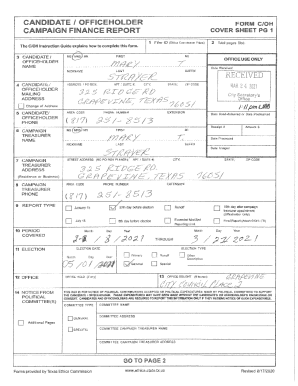 CANDIDATE / OFFICEHOLDER CAMPAIGN FINANCE REPORT
FORM C/OH COVER SHEET PG 1
The C/OH Instruction Guide explains how to complete this form.
1 Filer ID (Ethics Commission Filers)
2 Total pages filed:
3 CANDIDATE / OFFICEHOLDER NAME
MS / MRS / MR FIRST MI
MARY T
NICKNAME LAST SUFFIX
STRAYER
OFFICE USE ONLY
Date Received
RECEIVED
MAR 26 2021
City Secretary's Office
4 CANDIDATE / OFFICEHOLDER MAILING ADDRESS
Change of Address
ADDRESS / PO BOX; APT / SUITE #; CITY; STATE; ZIP CODE
325 RIDGE RD
GRAPEVINE, TEXAS 76051
5 CANDIDATE / OFFICEHOLDER PHONE
AREA CODE PHONE NUMBER EXTENSION
(817) 251-8513
Date Hand-delivered or Date Postmarked
6 CAMPAIGN TREASURER NAME
MS / MRS / MR FIRST MI
MARY T
NICKNAME LAST SUFFIX
STRAYER
Receipt # Amount $
Date Processed
Date Imaged
7 CAMPAIGN TREASURER ADDRESS
(Residence or Business)
STREET ADDRESS (NO PO BOX PLEASE); APT / SUITE #; CITY; STATE; ZIP CODE
325 RIDGE RD
GRAPEVINE, TEXAS 76051
8 CAMPAIGN TREASURER PHONE
AREA CODE PHONE NUMBER EXTENSION
(817) 251-8513
9 REPORT TYPE
January 15
30th day before election
Runoff
15th day after campaign treasurer appointment (Officeholder Only)
July 15
8th day before election
Exceeded Modified Reporting Limit
Final Report (Attach C/OH - FR)
10 PERIOD COVERED
Month Day Year
/ 2021
THROUGH
Month Day Year
3 / 22 / 2021
11 ELECTION
ELECTION DATE
Month Day Year
05 / 01 / 2021
ELECTION TYPE
Primary
Runoff
Other Description
General
Special
12 OFFICE
OFFICE HELD (if any)
13 OFFICE SOUGHT (if known)
GRAPEVINE
CITY COUNCIL PLACE 2
14 NOTICE FROM POLITICAL COMMITTEE(S)
THIS BOX IS FOR NOTICE OF POLITICAL CONTRIBUTIONS ACCEPTED OR POLITICAL EXPENDITURES MADE BY POLITICAL COMMITTEES TO SUPPORT THE CANDIDATE / OFFICEHOLDER. THESE EXPENDITURES MAY HAVE BEEN MADE WITHOUT THE CANDIDATE'S OR OFFICEHOLDER'S KNOWLEDGE OR CONSENT. CANDIDATES AND OFFICEHOLDERS ARE REQUIRED TO REPORT THIS INFORMATION ONLY IF THEY RECEIVE NOTICE OF SUCH EXPENDITURES.
Additional Pages
COMMITTEE TYPE
GENERAL
SPECIFIC
COMMITTEE NAME
COMMITTEE ADDRESS
COMMITTEE CAMPAIGN TREASURER NAME
COMMITTEE CAMPAIGN TREASURER ADDRESS
GO TO PAGE 2
Forms provided by Texas Ethics Commission
www.ethics.state.tx.us
Revised 8/17/2020